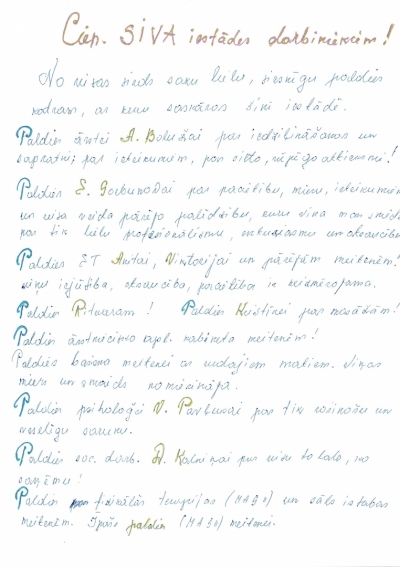 Cien. SIVA iestādes darbiniekiem!
No visas sirds saku lielu, sirsnīgu paldies
katram, ar kuru saskāros šinī iestādē.
Paldies ārstei A. Bolužai par iedziļināšanos un
sapratni; par ieteikumiem, par silto, rūpīgo attieksmi!
Paldies E. Gorbunovai par pacietību, mieru, ieteikumiem
un visa veida pārējo palīdzību, kuru viņa man sniedza
par tik lielu profesionālismu, entuziasmu un atsaucību
Paldies ET Anitai, Viktorijai un pārējām meitenēm!
viņu izjūtība, atsaucība, precizitāte ir neizmērojama.
Paldies Ritvaram! Paldies Kristīnei par masāžām!
Paldies ārstniecisko apl. kabineta meitenēm!
Paldies baseina meitenei ar rudajiem matiem. Viņas
miers un smaids nomierināja.
Paldies psiholoģei V. par tik rosinošu un
veselīgu sarunu.
Paldies soc. darb. A. Kalniņai par visu to labo, ko
saņēmu!
Paldies fizikālās terapijas (MAGO) un sāls istabas
meitenēm. Īpašs paldies (MAGO) meitenei.